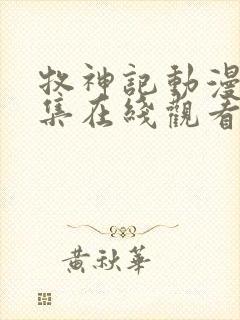 牧神記動漫
集在綫觀看
黃秋華